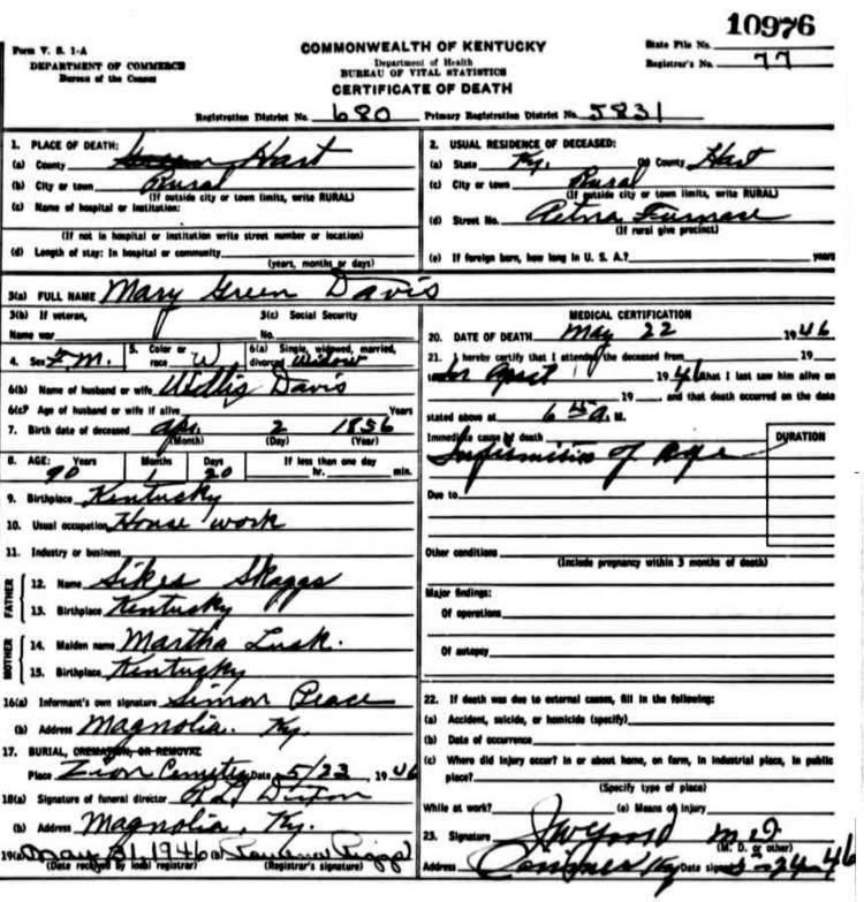 10976
Form V. S. 1-A
DEPARTMENT OF COMMERCE
Bureau of the Census
COMMONWEALTH OF KENTUCKY
Department of Health
BUREAU OF VITAL STATISTICS
CERTIFICATE OF DEATH
State File No.
Registrar's No. 77
Registration District No. 680 Primary Registration District No. 5831
1. PLACE OF DEATH:
(a) County Hart
(b) City or town Rural
(If outside city or town limits, write RURAL)
(c) Name of hospital or institution:
(If not in hospital or institution write street number or location)
(d) Length of stay: In hospital or community
(years, months or days)
2. USUAL RESIDENCE OF DECEASED:
(a) State Ky. (b) County Hart
(c) City or town Rural
(If outside city or town limits, write RURAL)
(d) Street No. Aetna Furnace
(If rural give precinct)
(e) If foreign born, how long in U. S. A.? years
3(a) FULL NAME Mary Green Davis
3(b) If veteran,
Name war
3(c) Social Security
No.
4. Sex Fm. 5. Color or race W 6(a) Single, widowed, married, divorced Widow
6(b) Name of husband or wife Willis Davis
6(c) Age of husband or wife if alive Years
7. Birth date of deceased Apr. 2 1856
(Month) (Day) (Year)
8. AGE: Years Months Days If less than one day
90 1 20 hr. min.
9. Birthplace Kentucky
10. Usual occupation House work
11. Industry or business
FATHER
12. Name Sikes Skaggs
13. Birthplace Kentucky
MOTHER
14. Maiden name Martha Lusk.
15. Birthplace Kentucky
16(a) Informant's own signature Simon Peace
(b) Address Magnolia. Ky.
17. BURIAL, CREMATION, OR REMOVAL
Place Zion Cemetery Date 5/23, 1946
18(a) Signature of funeral director Dixon
(b) Address Magnolia, Ky.
19(a) May 31, 1946 (b)
(Date received by local registrar) (Registrar's signature)
MEDICAL CERTIFICATION
20. DATE OF DEATH May 22 1946
21. I hereby certify that I attended the deceased from 19
1946 that I last saw him alive on
19 and that death occurred on the date
stated above at 6 A. M.
Immediate cause of death DURATION
Infirmities of age
Due to
Other conditions
(Include pregnancy within 3 months of death)
Major findings:
Of operations
Of autopsy
22. If death was due to external causes, fill in the following:
(a) Accident, suicide, or homicide (specify)
(b) Date of occurrence
(c) Where did injury occur? In or about home, on farm, in industrial place, in public
place?
(Specify type of place)
While at work? (e) Means of injury
23. Signature M D
(M. D. or other)
Address Ky Date signed 5-24-46